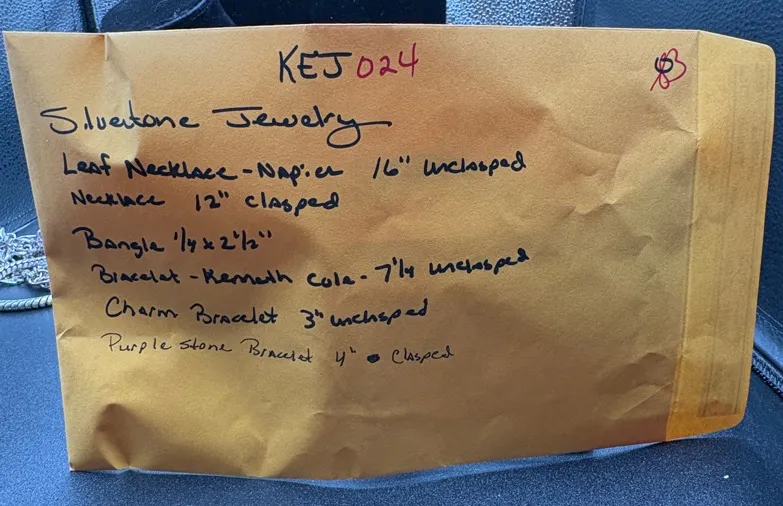 KEJ 024
Silvertone Jewelry
Leaf Necklace - Napier 16" unclasped
Necklace 12" clasped
Bangle 1/4 x 2 1/2"
Bracelet - Kenneth Cole - 7 1/4 unclasped
Charm Bracelet 3" unclasped
Purple Stone Bracelet 4" clasped